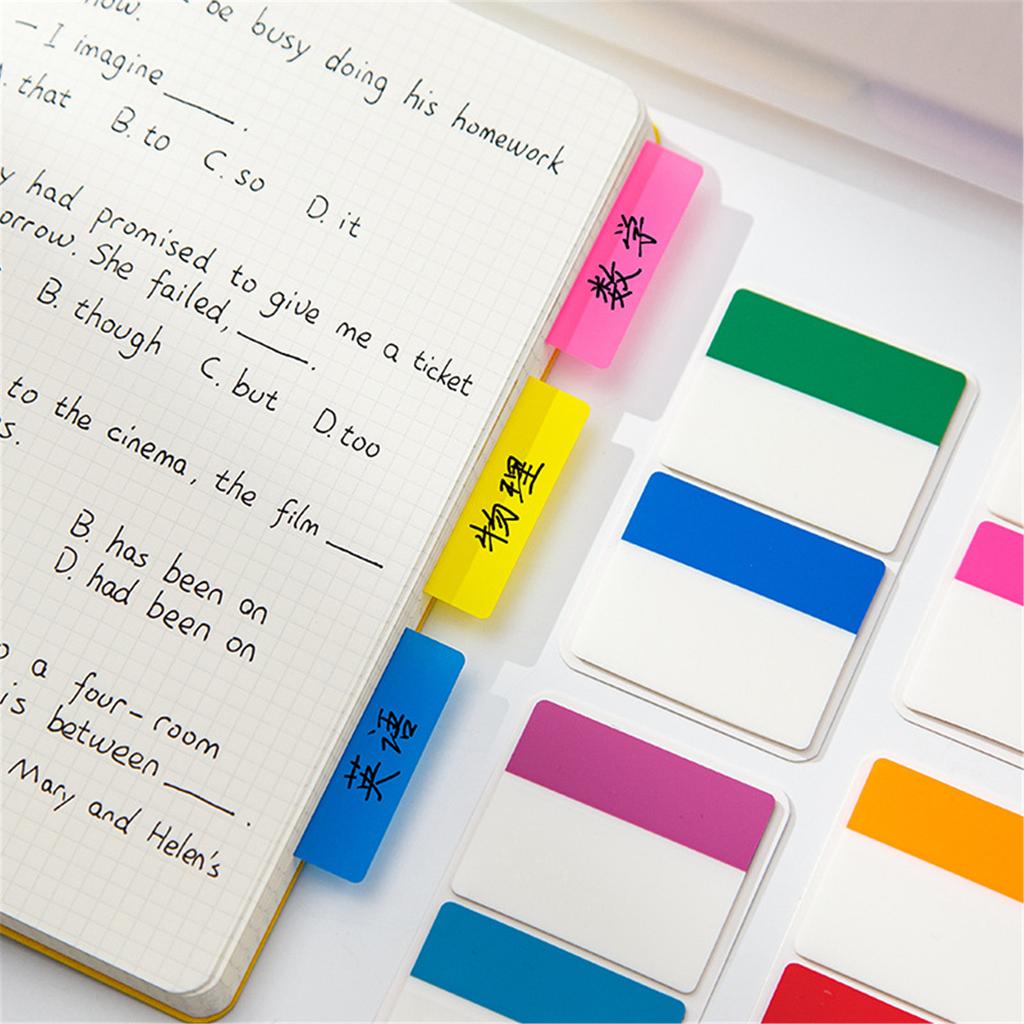 be busy doing his homework
now.
— I imagine ____.
A. that B. to C. so D. it
had promised to give me a ticket
She failed, ____.
B. though C. but D. too
to the cinema, the film ____
B. has been an
D. had been on
a four-room
is between ____.
Mary and Helen's
数学
物理
英语